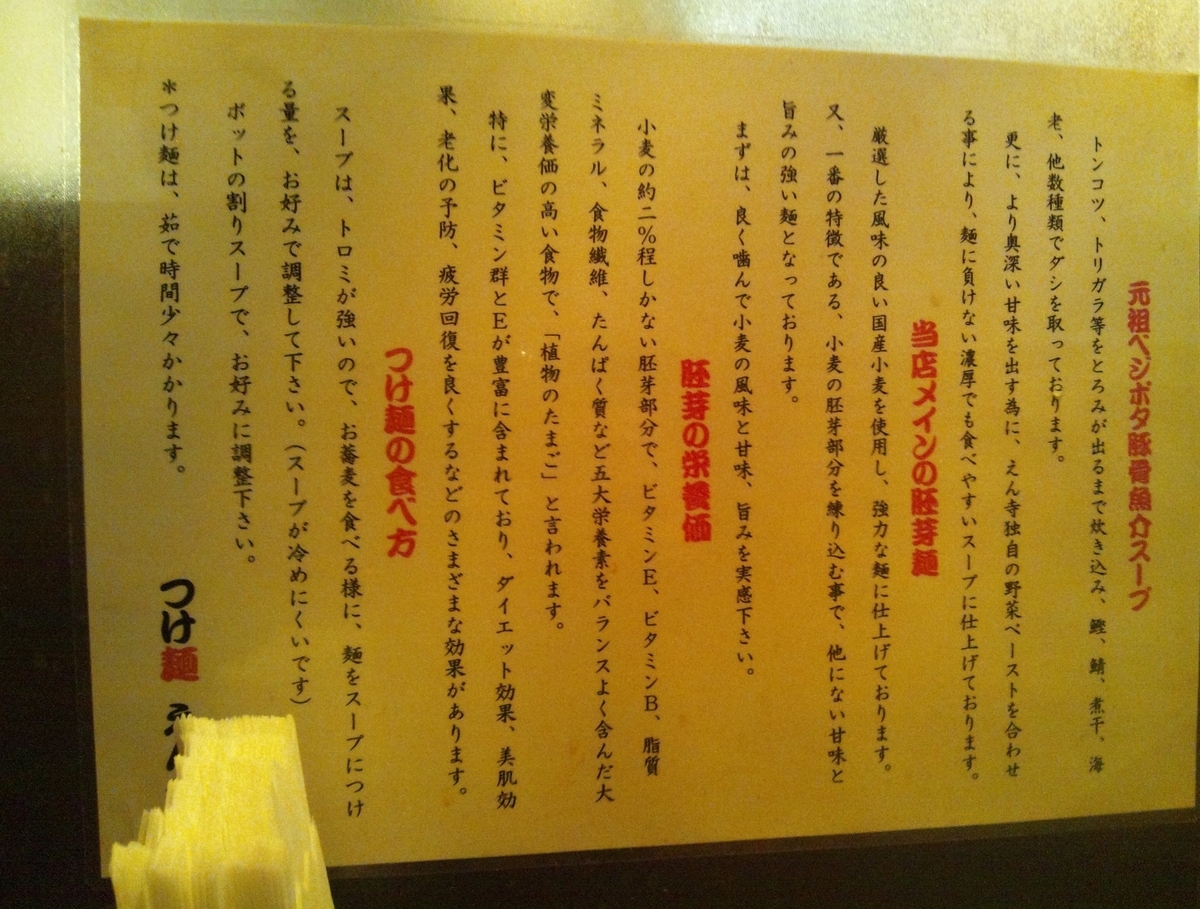 元祖ベジポタ豚骨魚介スープ
トンコツ、トリガラ等をとろみが出るまで炊き込み、鰹、鯖、煮干、海
老、他数種類でダシを取っております。
更に、より奥深い甘味を出す為に、えん寺独自の野菜ペーストを合わせ
る事により、麺に負けない濃厚でも食べやすいスープに仕上げております。
当店メインの胚芽麺
厳選した風味の良い国産小麦を使用し、強力な麺に仕上げております。
又、一番の特徴である、小麦の胚芽部分を練り込む事で、他にない甘味と
旨みの強い麺となっております。
まずは、良く噛んで小麦の風味と甘味、旨みを実感下さい。
胚芽の栄養価
小麦の約二%程しかない胚芽部分で、ビタミンE、ビタミンB、脂質
ミネラル、食物繊維、たんぱく質など五大栄養素をバランスよく含んだ大
変栄養価の高い食物で、「植物のたまご」と言われます。
特に、ビタミン群とEが豊富に含まれており、ダイエット効果、美肌効
果、老化の予防、疲労回復を良くするなどのさまざまな効果があります。
つけ麺の食べ方
スープは、トロミが強いので、お蕎麦を食べる様に、麺をスープにつけ
る量を、お好みで調整して下さい。(スープが冷めにくいです)
ポットの割りスープで、お好みに調整下さい。
*つけ麺は、茹で時間少々かかります。
つけ麺